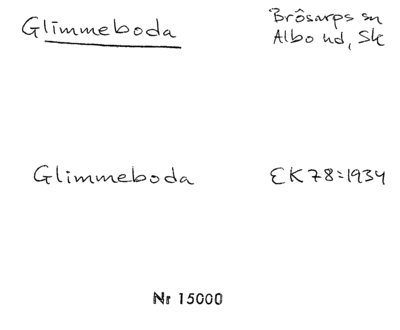 Glimmeboda
Brôsarps sn
Albo hd, Sk
Glimmeboda
EK 78:1934
Nr 15000